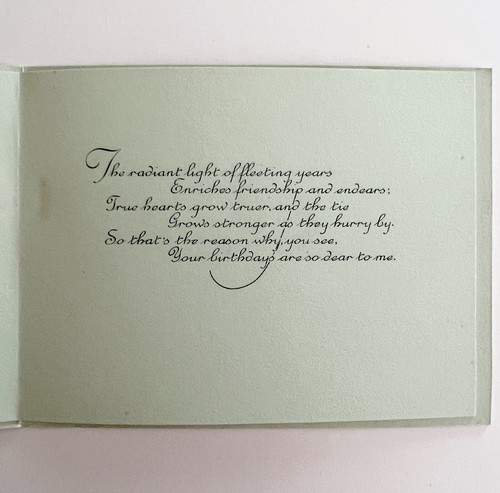 The radiant light of fleeting years
Enriches friendship and endears;
True hearts grow truer, and the tie
Grows stronger as they hurry by.
So that's the reason why, you see,
Your birthdays are so dear to me.